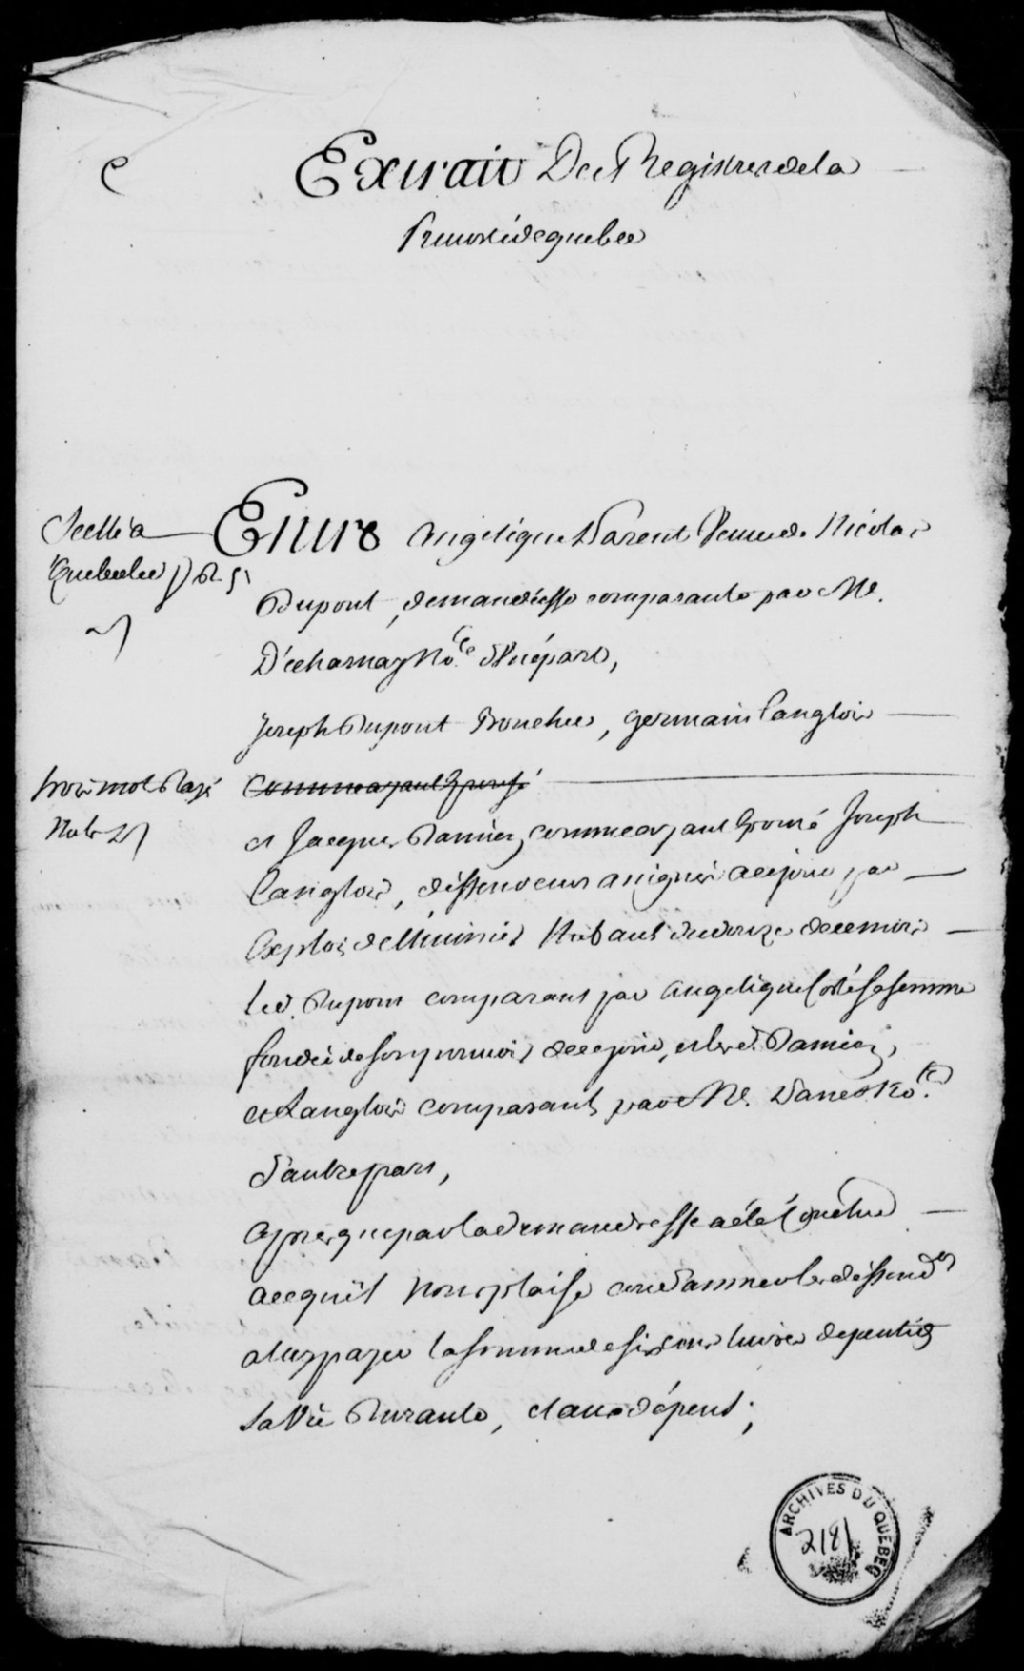 Extrait Des Registres de la
Prevosté de quebec
Scellé a
Quebec led.
Entre Angelique Parent Veuve de Nicolas
Dupont, demanderesse comparante par Me.
Décharnay No.re d'Unepart,
Joseph Dupont Boucher, germain Langlois
trois mots Rayé
Nuls
Comme ayant Epousé
et Jacques Damien, comme ayant Epousé Joseph
Langlois, deffendeurs assignés acejour par
Exploit de Thibault du douze decembre
led. Dupont comparant par Angelique Coté sa femme
fondée de son pouvoir decejour, et lesd. Damien,
et Langlois comparant par Me. Panet No.re
d'autre part,
Apres que par la demanderesse a été Conclud
acequ'il nous plaise condamner les deffend.rs
aluy payer la somme de six cent livres de
sa Vie Durante, et aux dépens;
ARCHIVES DU QUÉBEC
2181